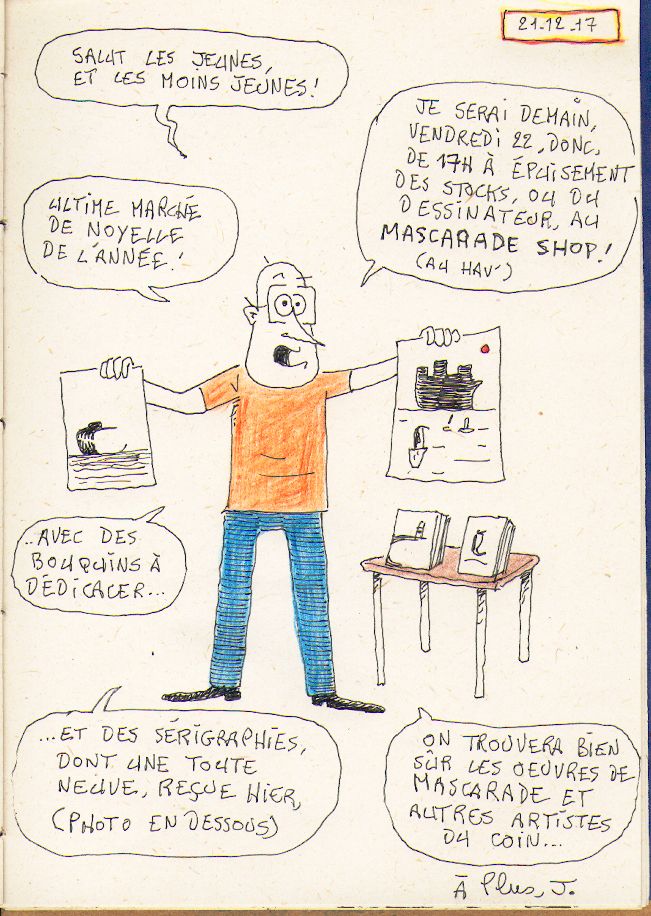 21-12-17
SALUT LES JEUNES,
ET LES MOINS JEUNES!
JE SERAI DEMAIN,
VENDREDI 22, DONC,
DE 17H À ÉPUISEMENT
DES STOCKS, OU DU
DESSINATEUR, AU
MASCARADE SHOP!
(AU HAV')
ULTIME MARCHÉ
DE NOYELLE
DE L'ANNÉE!
...AVEC DES
BOUQUINS À
DÉDICACER...
...ET DES SÉRIGRAPHIES,
DONT UNE TOUTE
NEUVE, REÇUE HIER,
(PHOTO EN DESSOUS)
ON TROUVERA BIEN
SÛR LES OEUVRES DE
MASCARADE ET
AUTRES ARTISTES
DU COIN...
À Plus, J.